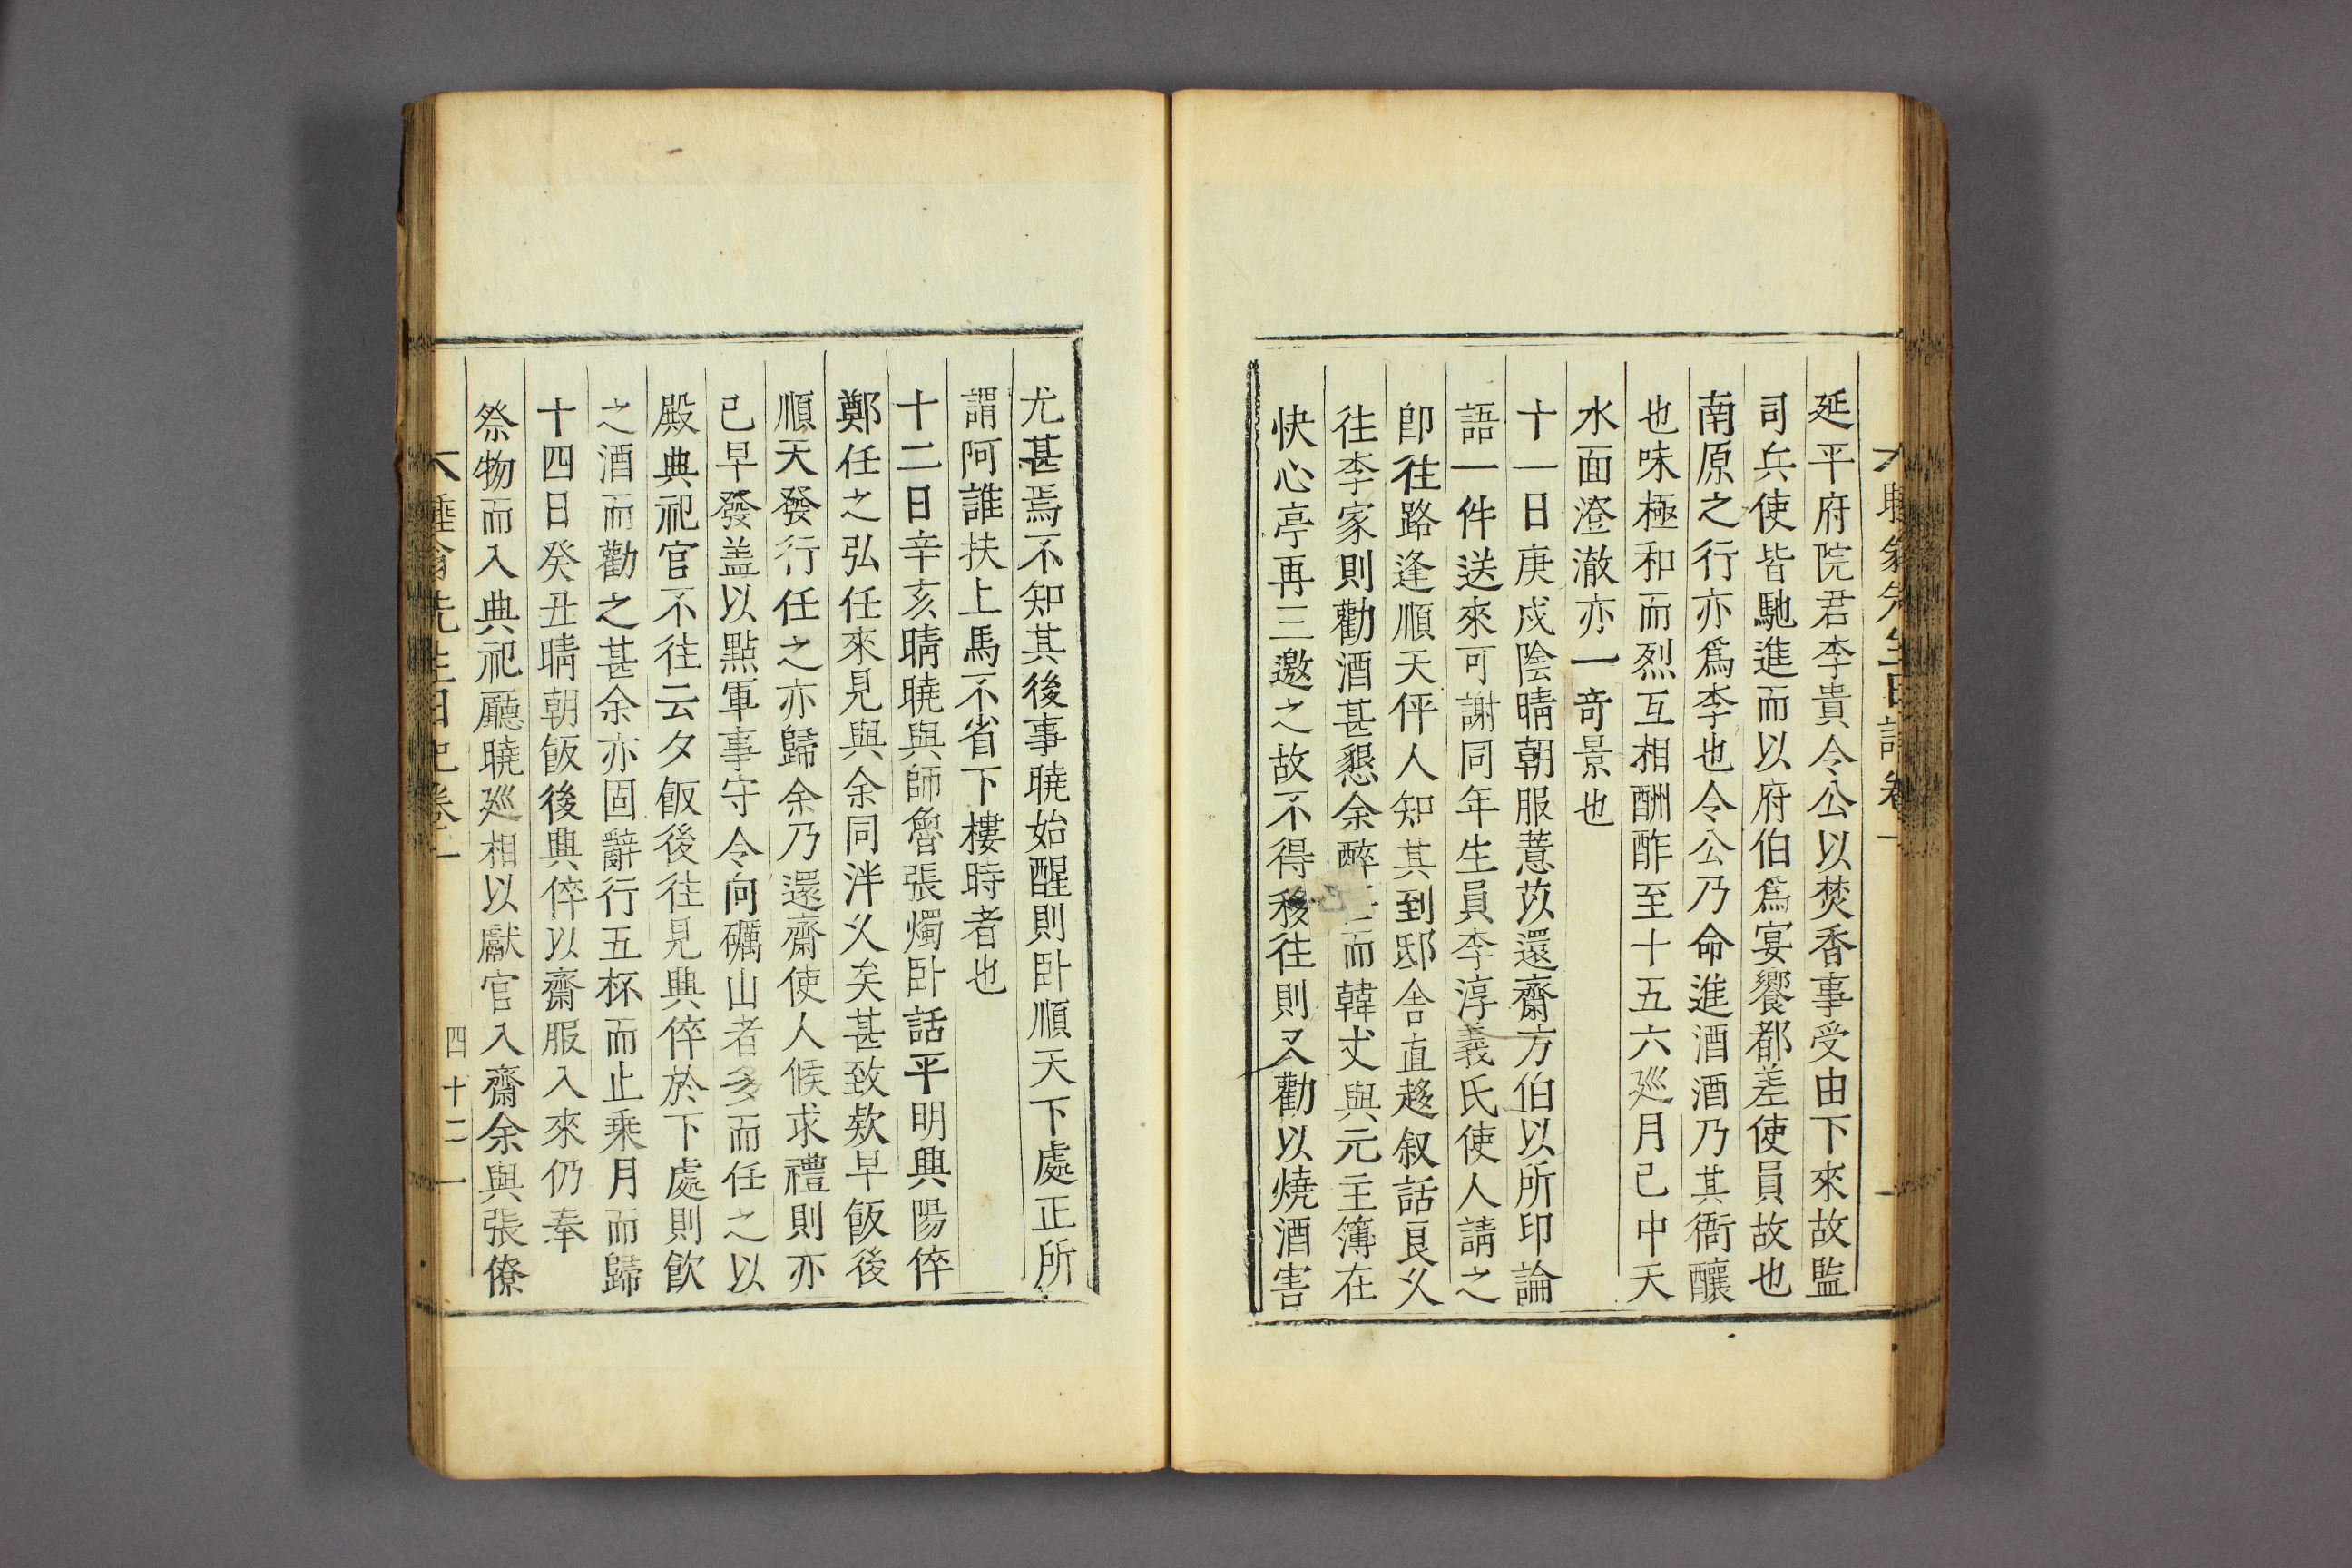 延平府院君李貴令公以焚香事受由下來故監
司兵使皆馳進而以府伯爲宴饗都差使員故也
南原之行亦爲李也令公乃命進酒酒乃其衙釀
也味極和而烈互相酬酢至十五六廵月已中天
水面澄澈亦一奇景也
十一日庚戌陰晴朝服薏苡還齋方伯以所印論
語一件送來可謝同年生員李淳義氏使人請之
卽往路逢順天伻人知其到邸舍直趍叙話良久
往李家則勸酒甚懇余醉 而韓丈與元主簿在
快心亭再三邀之故不得移往則又勸以燒酒害
尤甚焉不知其後事曉始醒則卧順天下處正所
謂阿誰扶上馬不省下樓時者也
十二日辛亥晴曉與師魯張燭卧話平明興陽倅
鄭任之弘任來見與余同泮久矣甚致欵早飯後
順天發行任之亦歸余乃還齋使人候求禮則亦
已早發盖以點軍事守令向礪山者多而任之以
殿典祀官不往云夕飯後往見興倅於下處則飮
之酒而勸之甚余亦固辭行五杯而止乘月而歸
十四日癸丑晴朝飯後興倅以齋服入來仍奉
祭物而入典祀廳曉廵相以獻官入齋余與張僚
先生日記卷 四十二